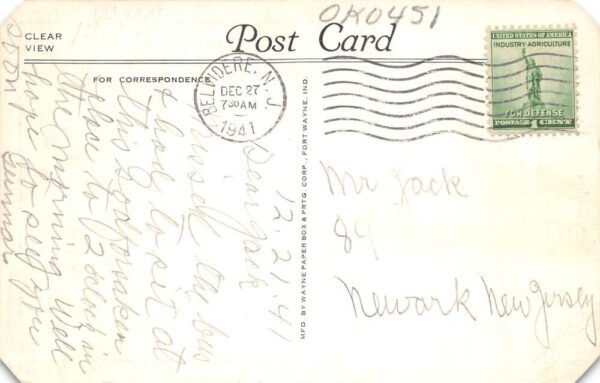 OK0451
CLEAR
VIEW
Post Card
FOR CORRESPONDENCE
BELVIDERE, N.J.
DEC 27
7 30 AM
1941
UNITED STATES OF AMERICA
INDUSTRY AGRICULTURE
FOR DEFENSE
POSTAGE 1 CENT
MFD. BY WAYNE PAPER BOX & PRTG. CORP., FORT WAYNE, IND.
12.21.41
Dear Jack
missed the bus
& had to sit at
this
place to 12 oclock in
the morning Well
hope to see you
soon
Gunnar
Mr Jack
89
Newark New Jersey